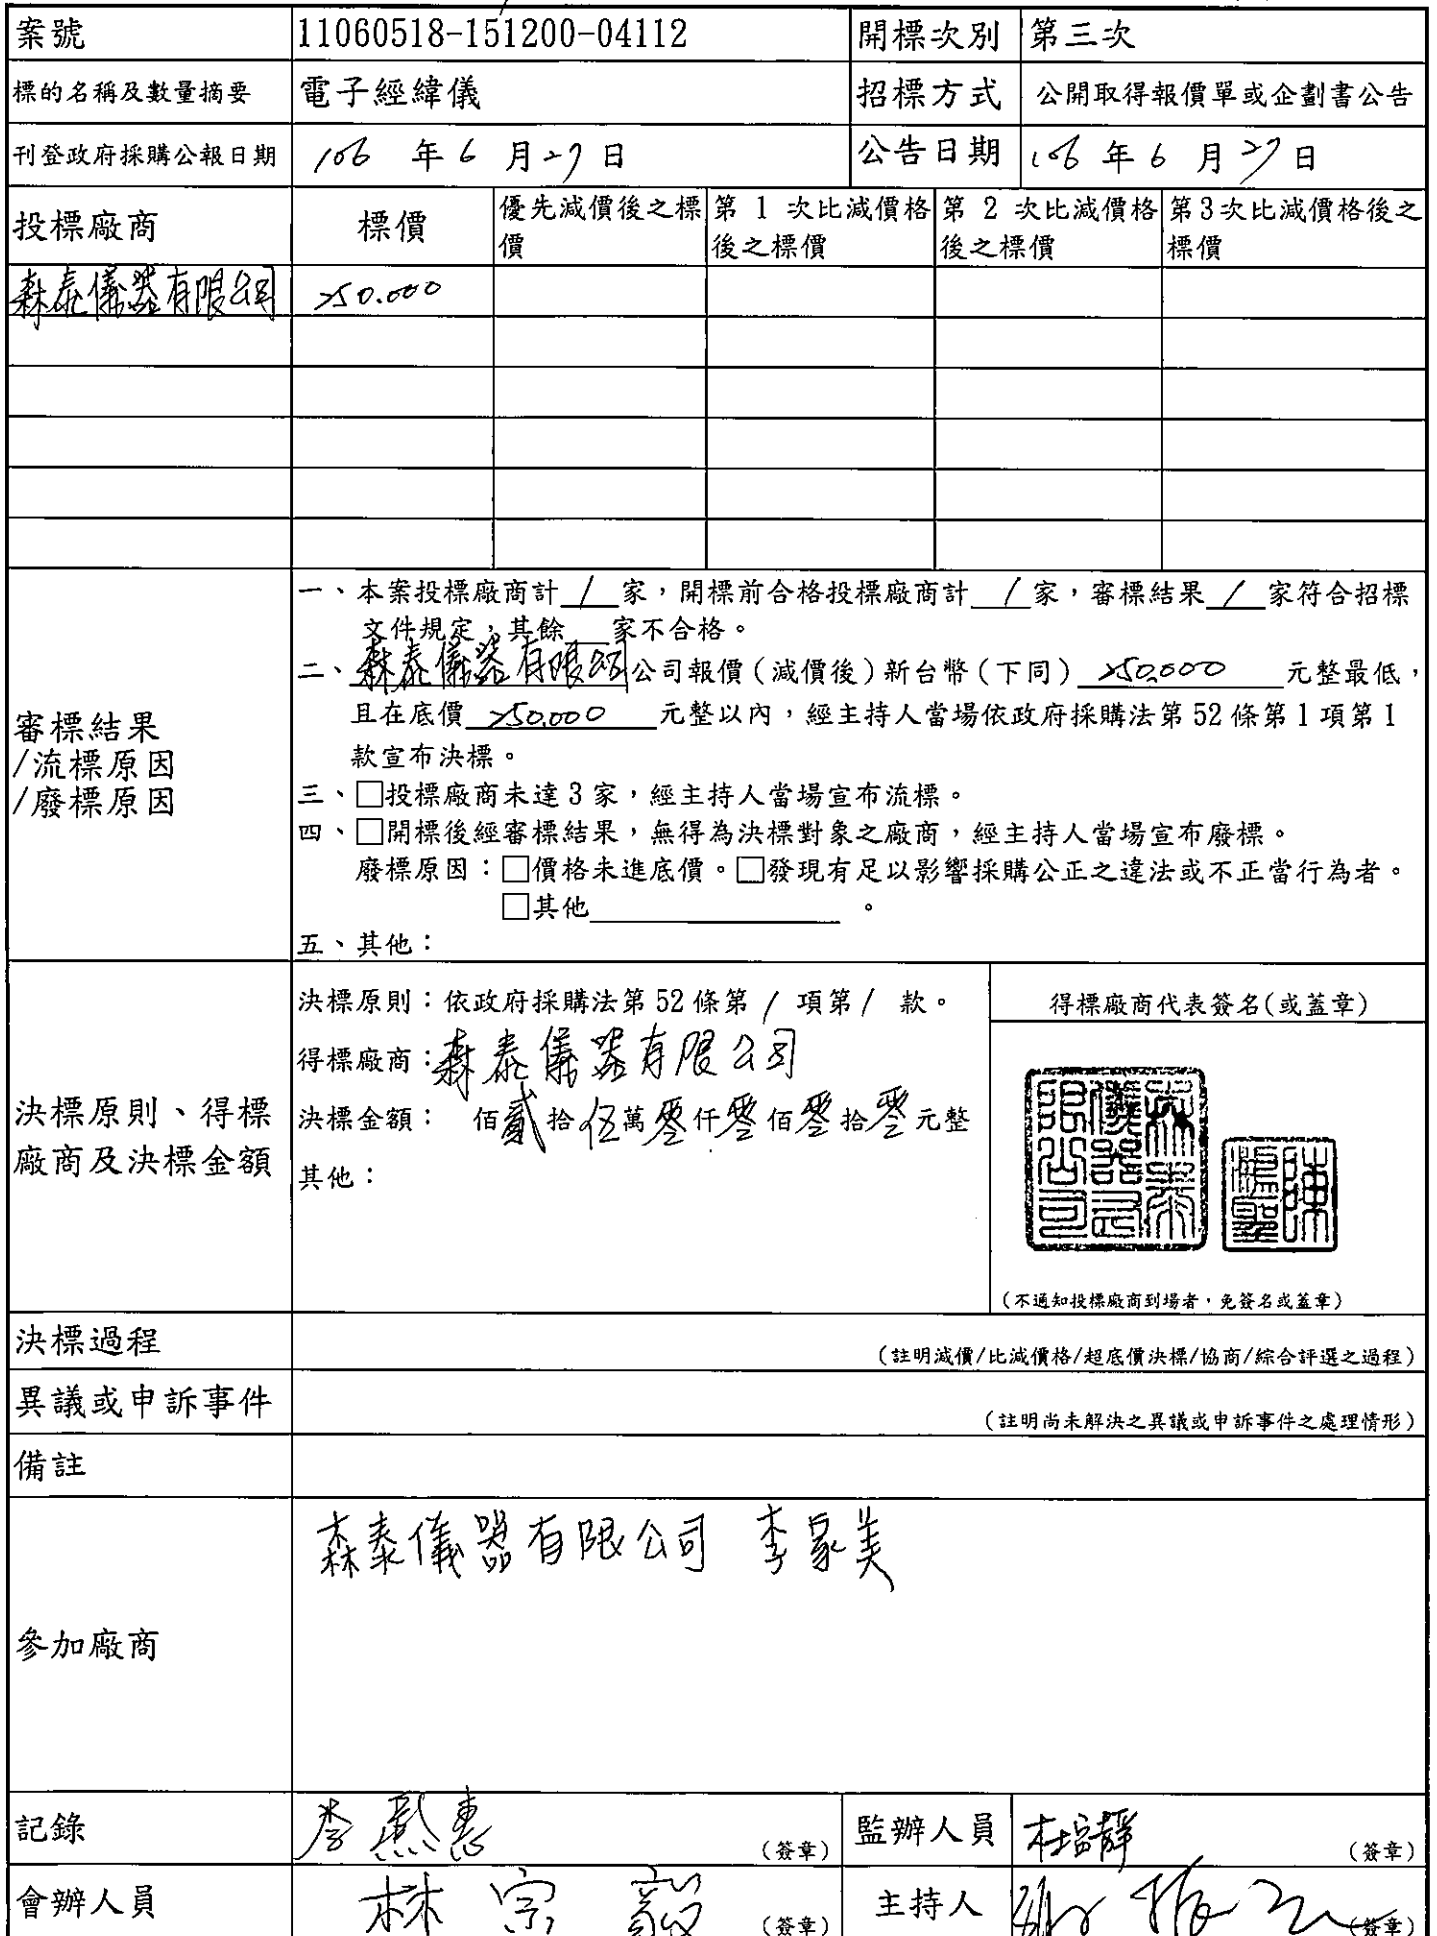 案號 11060518-151200-04112 開標次別 第三次
標的名稱及數量摘要 電子經緯儀 招標方式 公開取得報價單或企劃書公告
刊登政府採購公報日期 106 年 6 月 27 日 公告日期 106 年 6 月 27 日
投標廠商 標價 優先減價後之標價 第 1 次比減價格後之標價 第 2 次比減價格後之標價 第3次比減價格後之標價
森泰儀器有限公司 250.000
審標結果
/流標原因
/廢標原因
一、本案投標廠商計 1 家,開標前合格投標廠商計 1 家,審標結果 1 家符合招標
文件規定,其餘 家不合格。
二、森泰儀器有限公司公司報價(減價後)新台幣(下同) 250,000 元整最低,
且在底價 250,000 元整以內,經主持人當場依政府採購法第 52 條第 1 項第 1
款宣布決標。
三、□投標廠商未達 3 家,經主持人當場宣布流標。
四、□開標後經審標結果,無得為決標對象之廠商,經主持人當場宣布廢標。
廢標原因:□價格未進底價。□發現有足以影響採購公正之違法或不正當行為者。
□其他 。
五、其他:
決標原則、得標
廠商及決標金額
決標原則:依政府採購法第 52 條第 1 項第 1 款。
得標廠商:森泰儀器有限公司
決標金額: 佰貳拾伍萬零仟零佰零拾零元整
其他:
得標廠商代表簽名(或蓋章)
森泰儀器有限公司
(不通知投標廠商到場者,免簽名或蓋章)
決標過程 (註明減價/比減價格/超底價決標/協商/綜合評選之過程)
異議或申訴事件 (註明尚未解決之異議或申訴事件之處理情形)
備註
參加廠商 森泰儀器有限公司 李家美
記錄 (簽章) 監辦人員 (簽章)
會辦人員 林宗毅 (簽章) 主持人 (簽章)